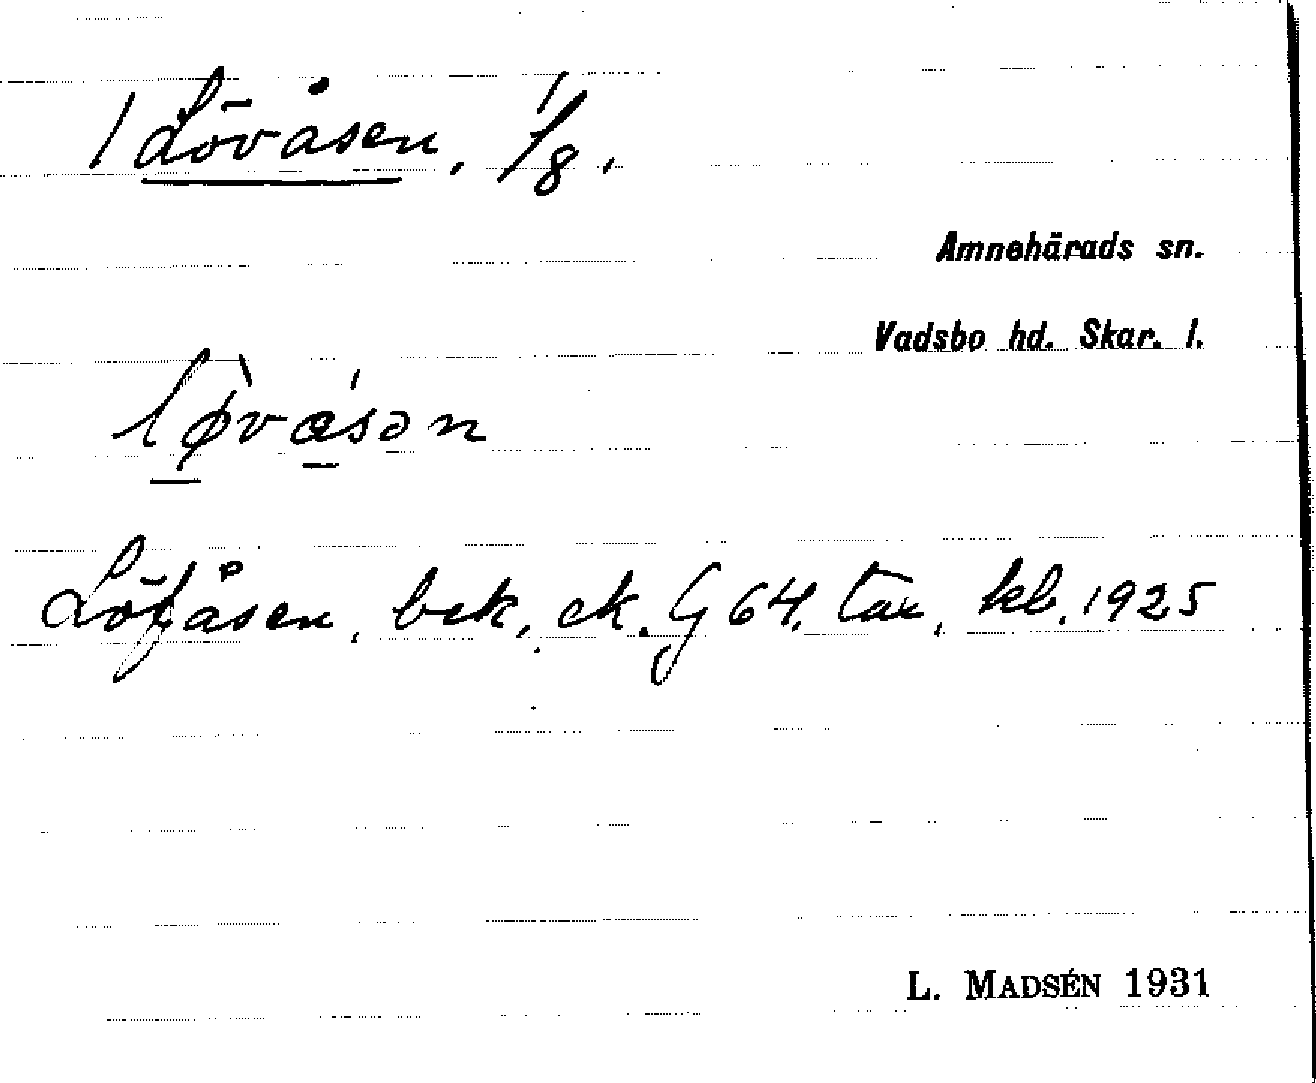 1 Lövåsen, 1/8.
Amnehärads sn.
Vadsbo hd. Skar. l.
lø̀va̍sən
Löfåsen, bek, ek. G 64, tax, kb. 1925
L. MADSÉN 1931